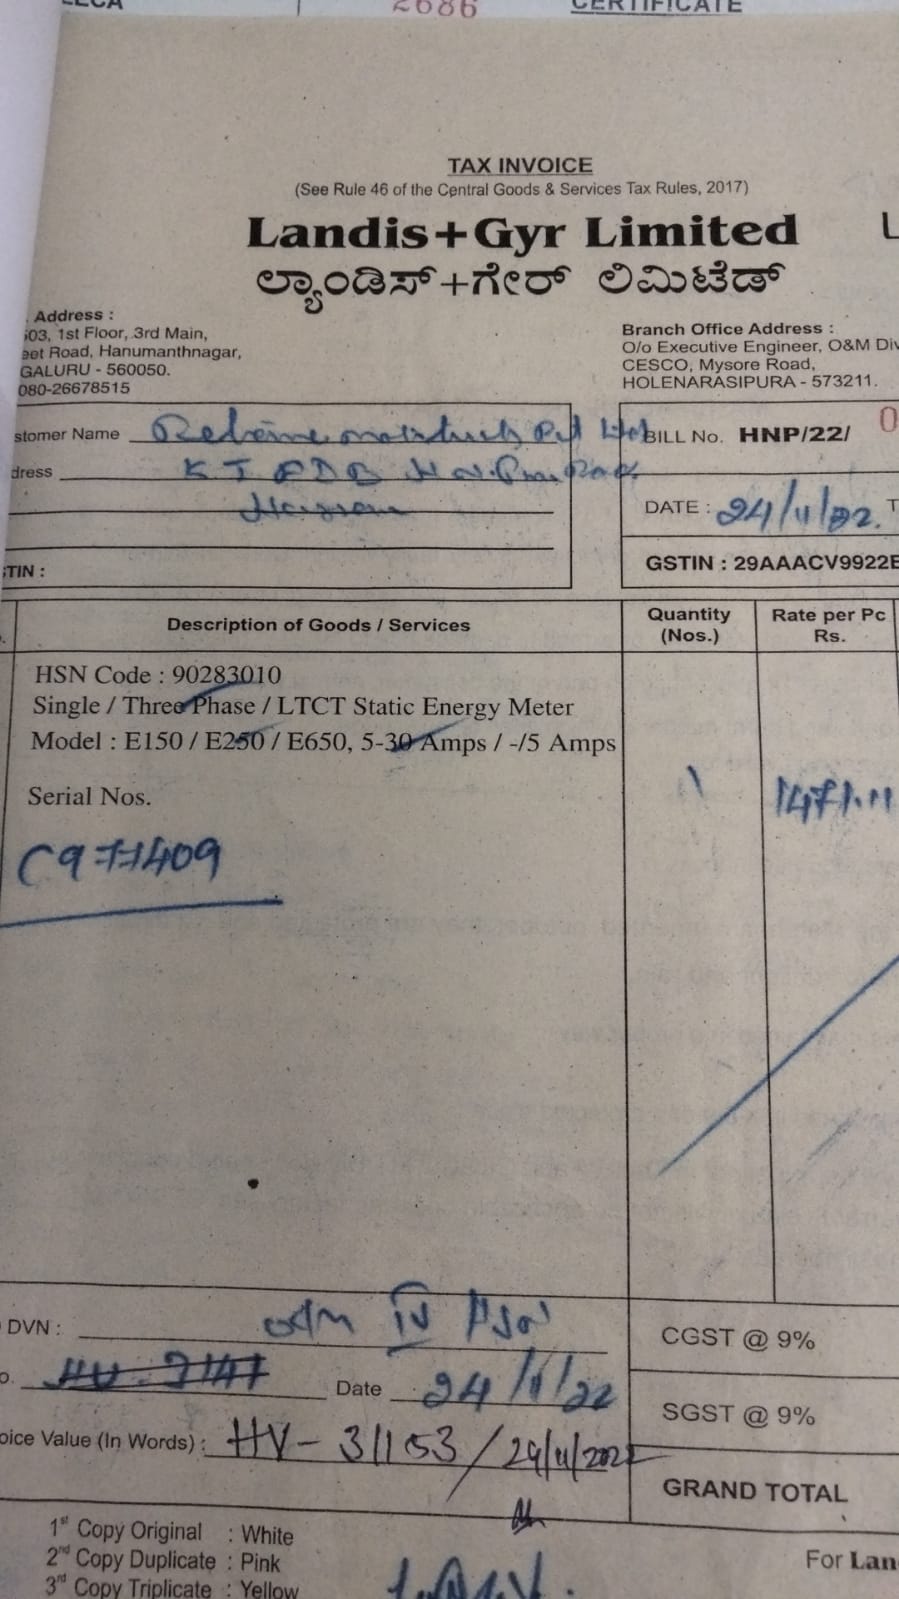 2686 CERTIFICATE
TAX INVOICE
(See Rule 46 of the Central Goods & Services Tax Rules, 2017)
Landis+Gyr Limited
ಲ್ಯಾಂಡಿಸ್+ಗೇರ್ ಲಿಮಿಟೆಡ್
Address :
03, 1st Floor, 3rd Main,
eet Road, Hanumanthnagar,
GALURU - 560050.
080-26678515
Branch Office Address :
O/o Executive Engineer, O&M Div
CESCO, Mysore Road,
HOLENARASIPURA - 573211.
stomer Name
dress
Hassan
STIN :
BILL No. HNP/22/ 0
DATE : 24/11/22.
GSTIN : 29AAACV9922E
Description of Goods / Services
Quantity (Nos.)
Rate per Pc Rs.
HSN Code : 90283010
Single / Three Phase / LTCT Static Energy Meter
Model : E150 / E250 / E650, 5-30 Amps / -/5 Amps
Serial Nos.
1 1471.11
C977409
DVN :
Date 24/11/22
oice Value (In Words) : HV - 31153 / 24/11/2022
CGST @ 9%
SGST @ 9%
GRAND TOTAL
1st Copy Original : White
2nd Copy Duplicate : Pink
3rd Copy Triplicate : Yellow
For Lan